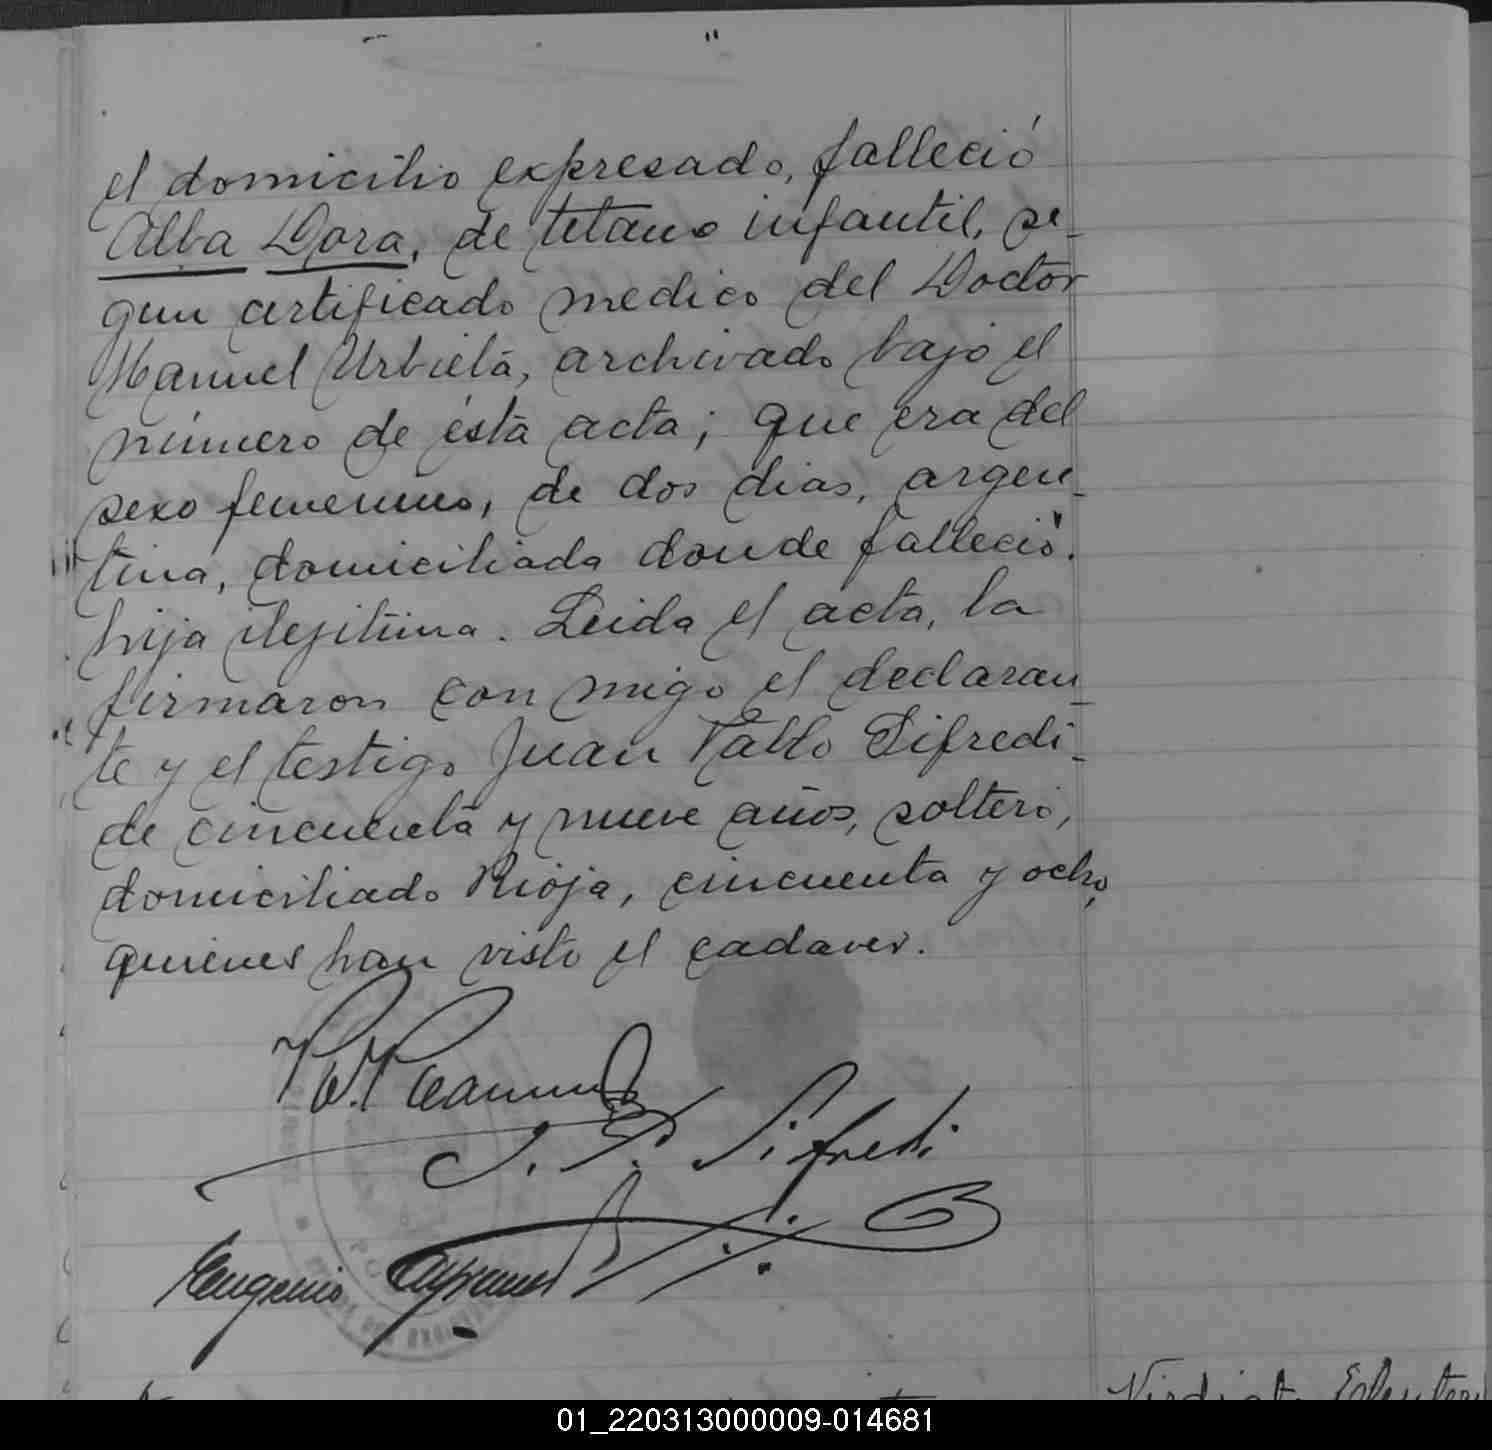 el domicilio expresado, falleció
Alba Dora, de tetano infantil, se-
gun certificado medico del Doctor
Manuel Urbieta, archivado bajo el
número de ésta acta; que era del
sexo femenino, de dos dias, argen-
tina, domiciliada donde falleció.
hija ilegitima. Leida el acta, la
firmaron con migo el declaran-
te y el testigo Juan Pablo Sifredi-
de cincuenta y nueve años, soltero,
domiciliado Rioja, cincuenta y ocho,
quienes han visto el cadaver.
J. P. Sifredi
Eugenio
01_220313000009-014681